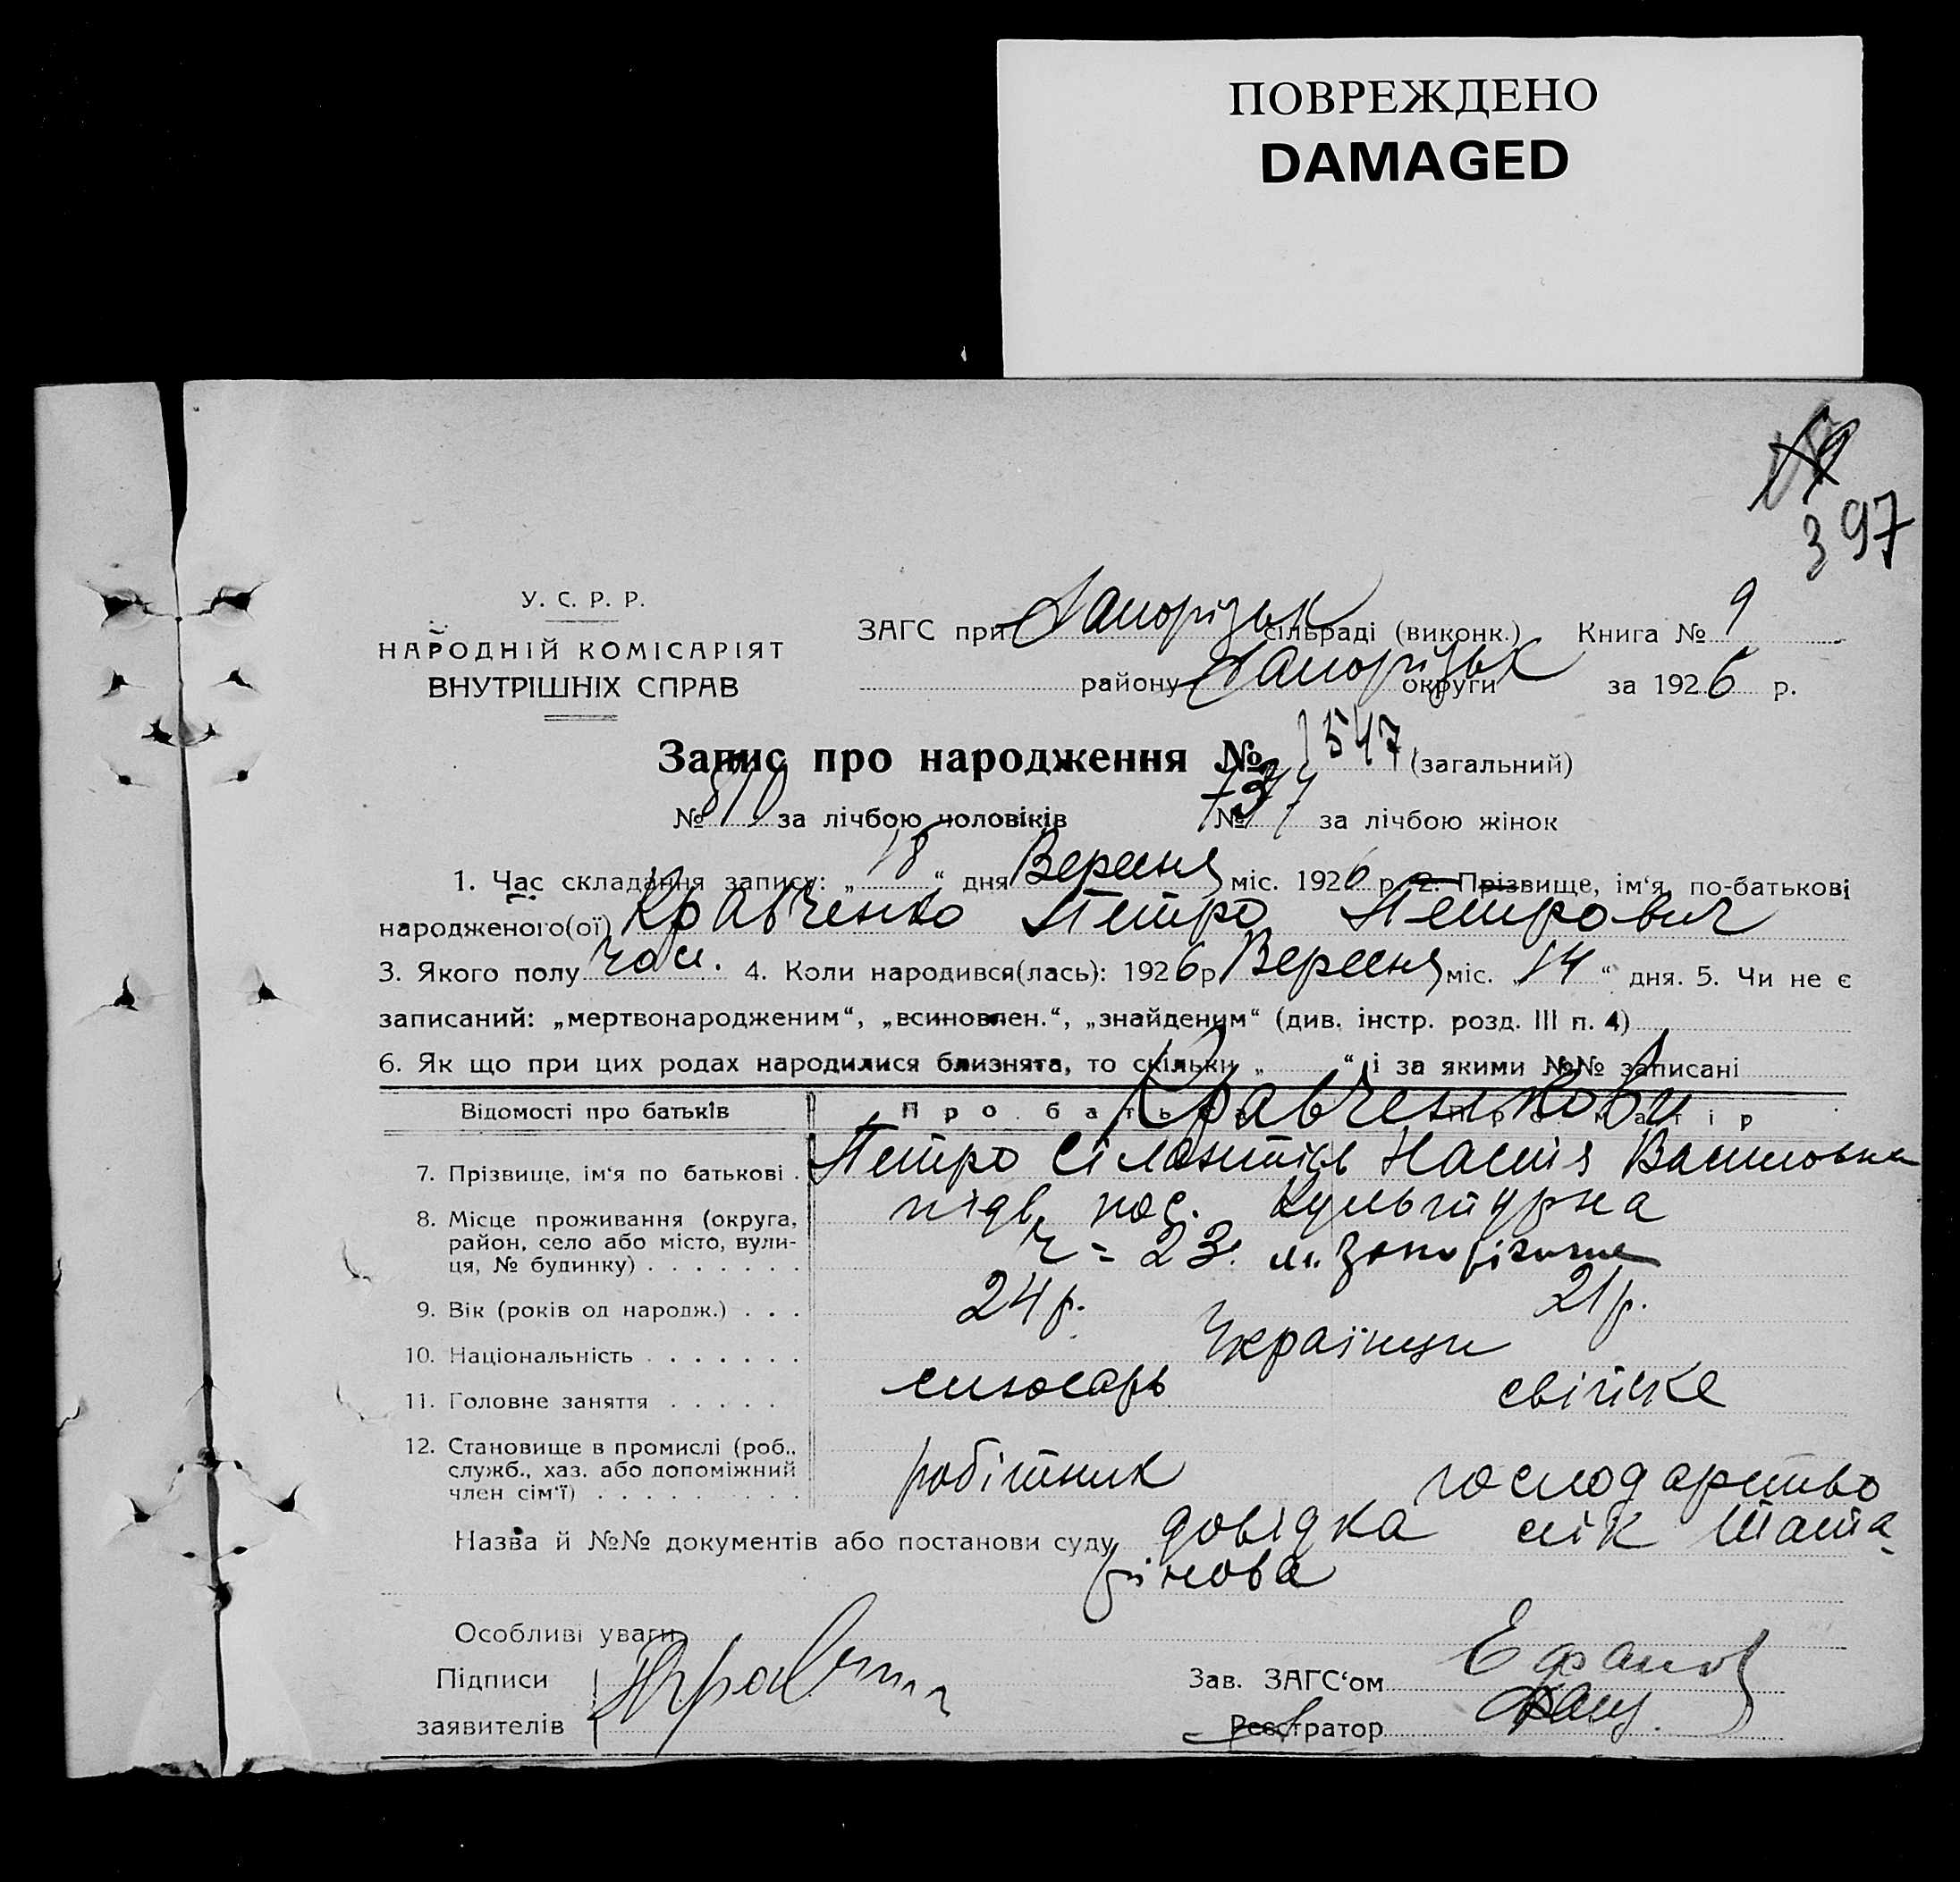 ПОВРЕЖДЕНО
DAMAGED
397
У. С. Р. Р.
НАРОДНІЙ КОМІСАРІЯТ
ВНУТРІШНІХ СПРАВ
ЗАГС при Запорізьк сільраді (виконк.) Книга № 9
району Запорізьк округи за 1926 р.
Запис про народження № 1547 (загальний)
№ 810 за лічбою чоловіків № за лічбою жінок
1. Час складання запису: „ 18 “ дня Вересня міс. 1926 р. 2. Прізвище, ім‘я, по-батькові
народженого(ої) Кравченко Петро Петрович
3. Якого полу чол. 4. Коли народився(лась): 1926 р Вересня міс. „ 14 “ дня. 5. Чи не є
записаний: „мертвонародженим“, „всиновлен.“, „знайденим“ (див. інстр. розд. III п. 4)
6. Як що при цих родах народилися близнята, то скільки „ “ і за якими №№ записані
Відомості про батьків Про батька Про матір
Кравченкови
7. Прізвище, ім‘я по батькові . Петро Настя
8. Місце проживання (округа, район, село або місто, вули-ця, № будинку) . . . . . . . пос. Культурна
ч = 23. м. Запоріжжя
9. Вік (років од народж.) . . . 24 р. 21 р.
10. Національність . . . . . . . Українци
11. Головне заняття . . . . . слюсарь свійске
12. Становище в промислі (роб., служб., хаз. або допоміжний член сім‘ї) . . . . . . . . . робітник господарство
Назва й №№ документів або постанови суду довідка
Особливі уваги
Підписи
заявителів
Зав. ЗАГС‘ом Ефанов
Реєстратор